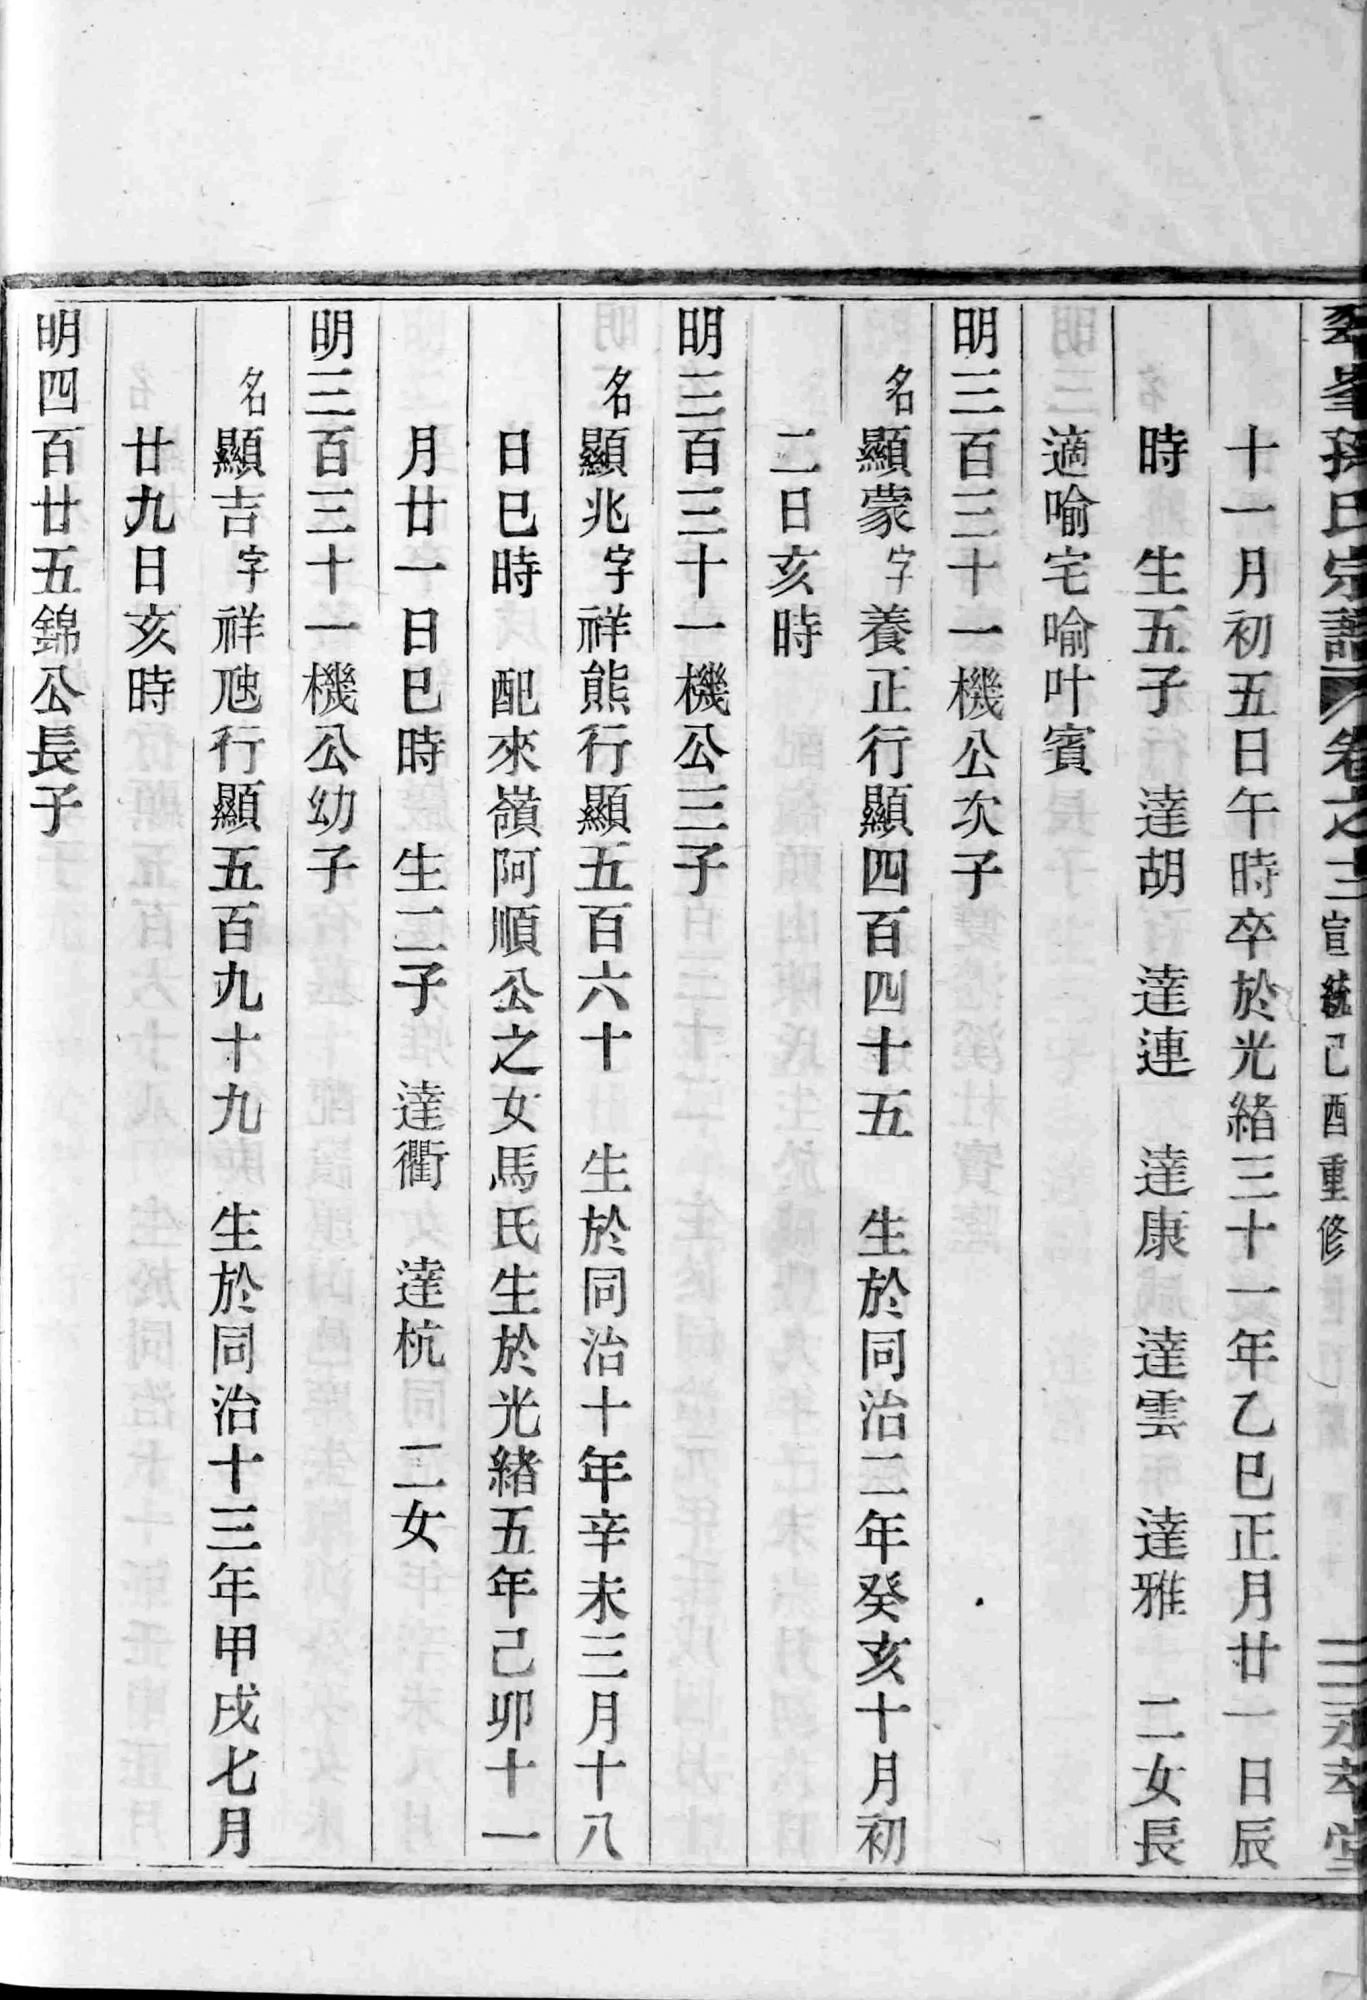 峯孫氏宗譜 卷之三 宣統己酉重修 二 永萃堂
十一月初五日午時卒於光緒三十一年乙巳正月廿一日辰
時 生五子 達胡 達連 達康 達雲 達雅 二女長
適喻宅喻叶賓
明三百三十一機公次子
名顯蒙字養正行顯四百四十五 生於同治二年癸亥十月初
二日亥時
明三百三十一機公三子
名顯兆字祥熊行顯五百六十 生於同治十年辛未三月十八
日巳時 配來嶺阿順公之女馬氏生於光緒五年己卯十一
月廿一日巳時 生二子 達衢 達杭 二女
明三百三十一機公幼子
名顯吉字祥虺行顯五百九十九 生於同治十三年甲戌七月
廿九日亥時
明四百廿五錦公長子